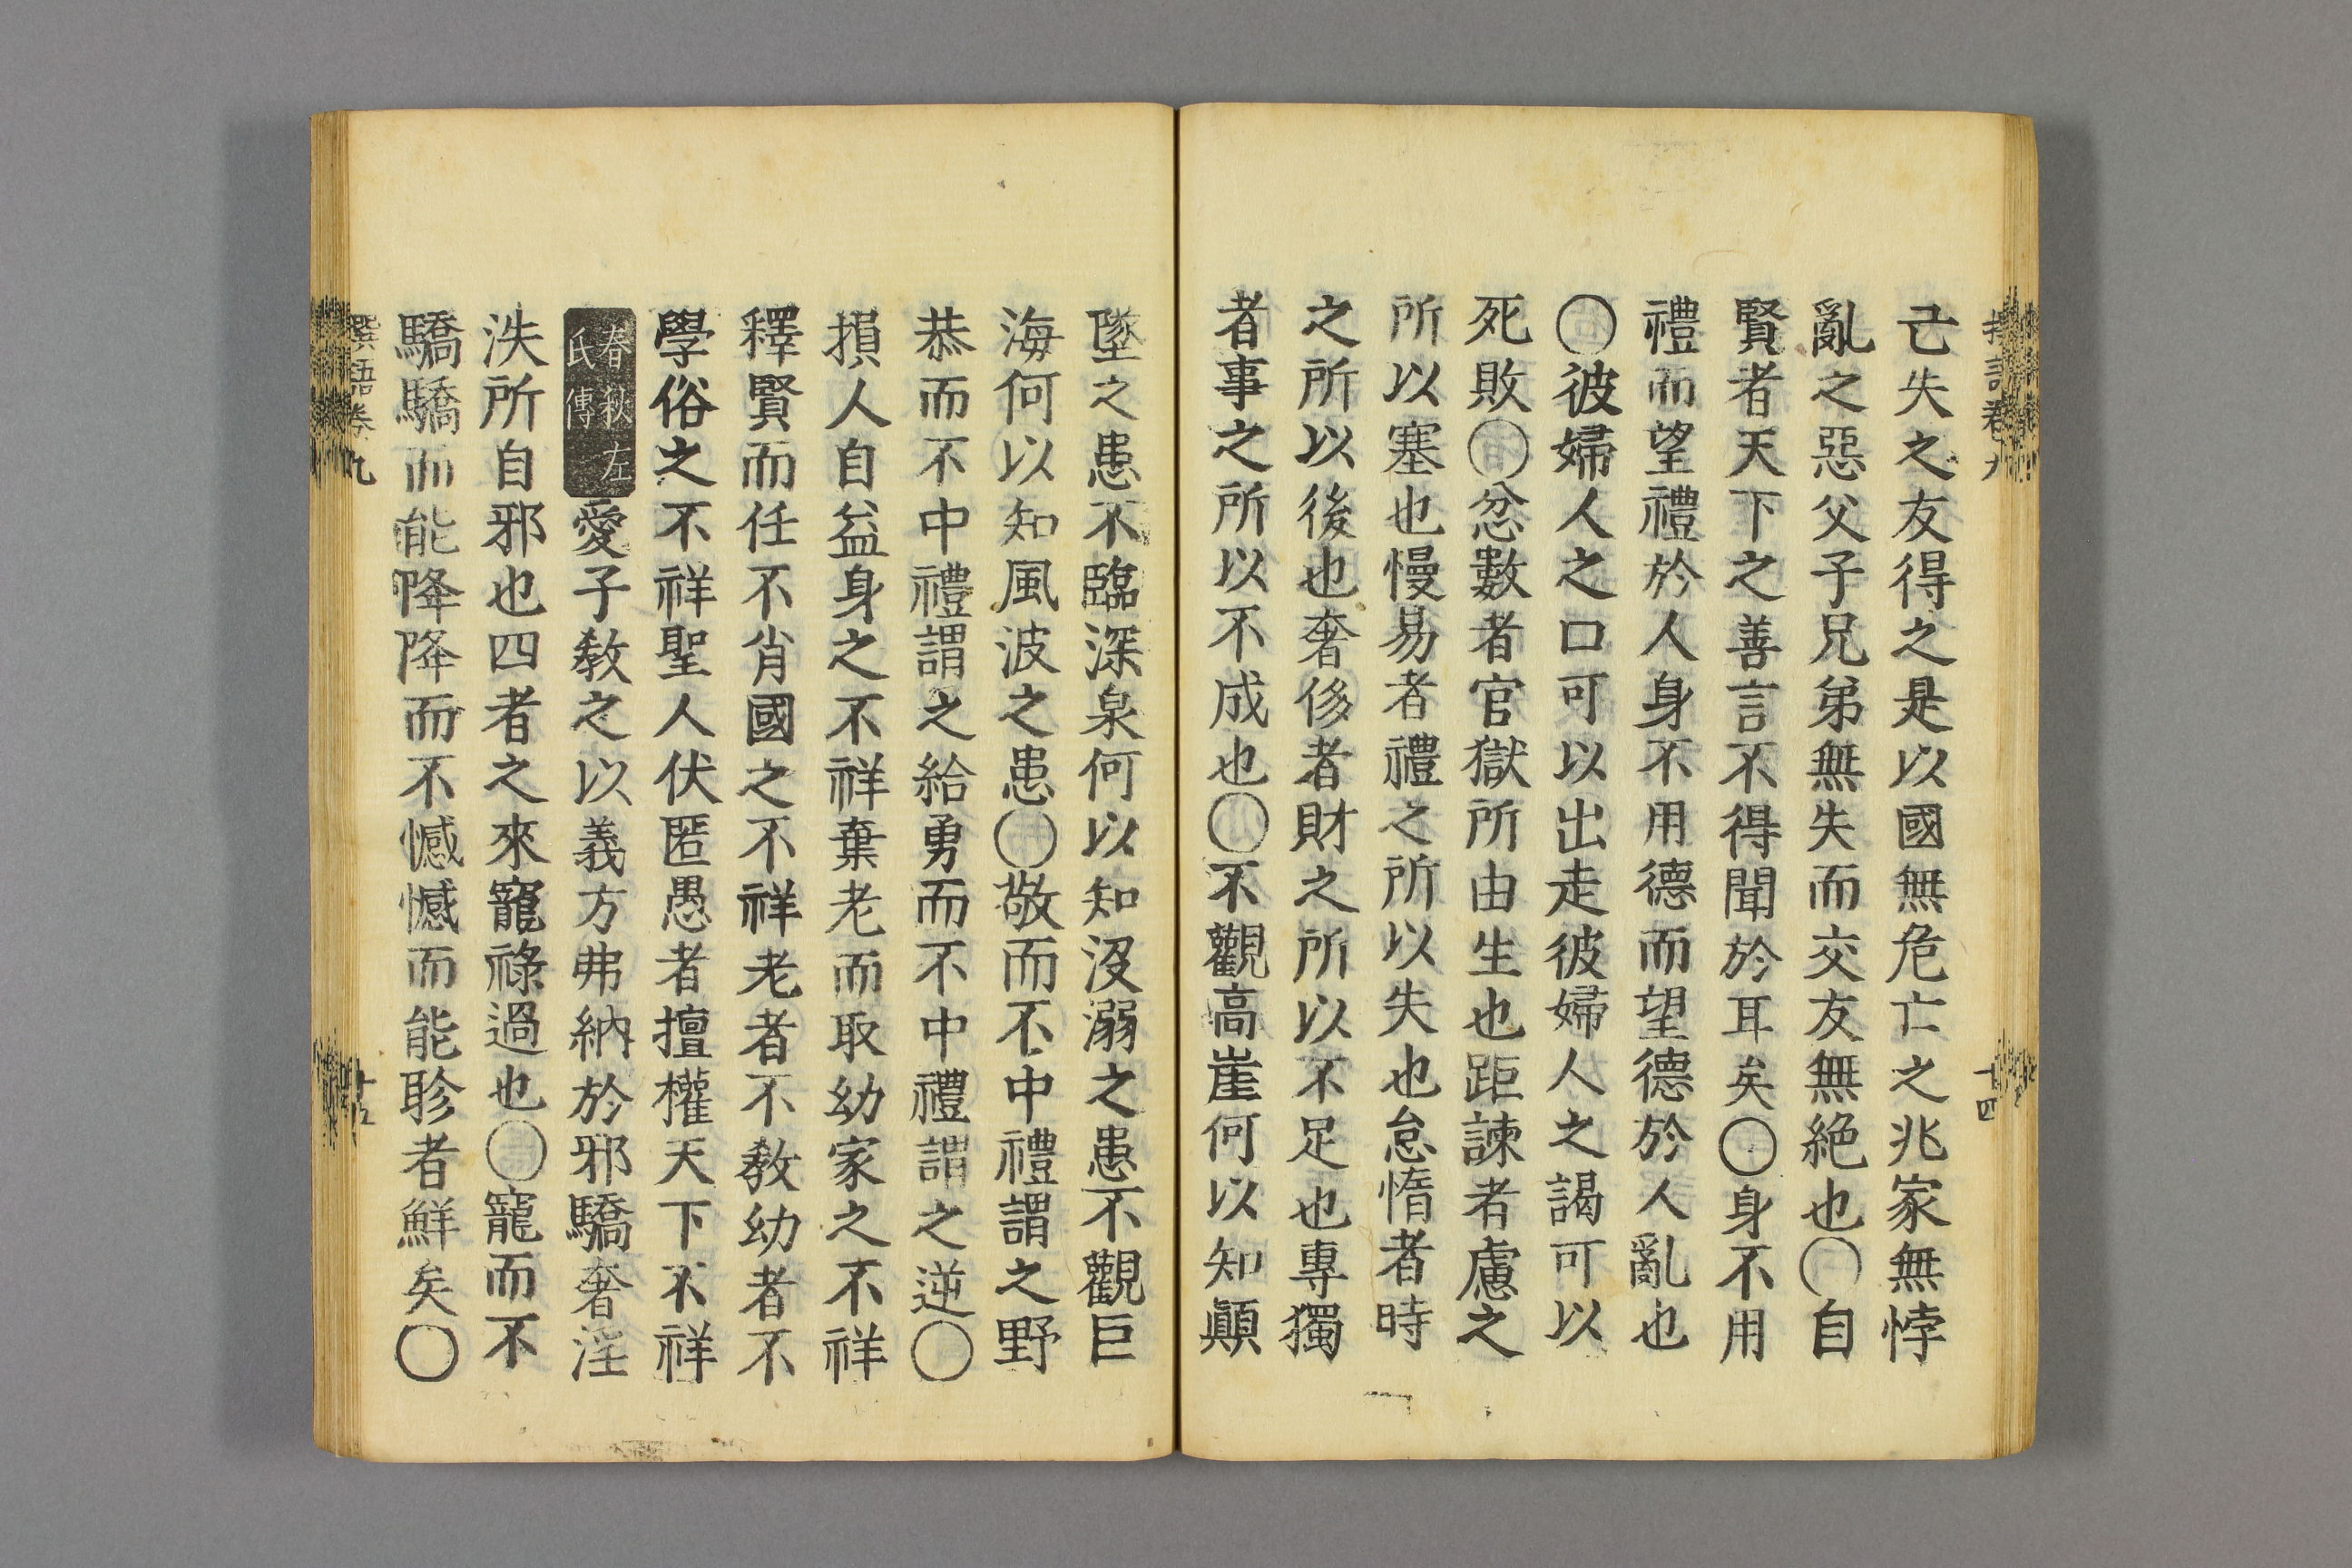 撰語卷九
十四
己失之友得之是以國無危亡之兆家無悖
亂之惡父子兄弟無失而交友無絕也〇自
賢者天下之善言不得聞於耳矣〇身不用
禮而望禮於人身不用德而望德於人亂也
〇彼婦人之口可以出走彼婦人之謁可以
死敗〇忿數者官獄所由生也距諫者慮之
所以塞也慢易者禮之所以失也怠惰者時
之所以後也奢侈者財之所以不足也專獨
者事之所以不成也〇不觀高崖何以知顚
墜之患不臨深泉何以知沒溺之患不觀巨
海何以知風波之患〇敬而不中禮謂之野
恭而不中禮謂之給勇而不中禮謂之逆〇
損人自益身之不祥棄老而取幼家之不祥
釋賢而任不肖國之不祥老者不敎幼者不
學俗之不祥聖人伏匿愚者擅權天下不祥
春秋左氏傳愛子敎之以義方弗納於邪驕奢淫
泆所自邪也四者之來寵祿過也〇寵而不
驕驕而能降降而不憾憾而能眕者鮮矣〇
撰語卷九
十五